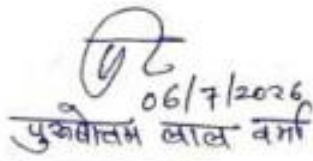 06/7/2026
पुरूषोत्तम लाल वर्मा